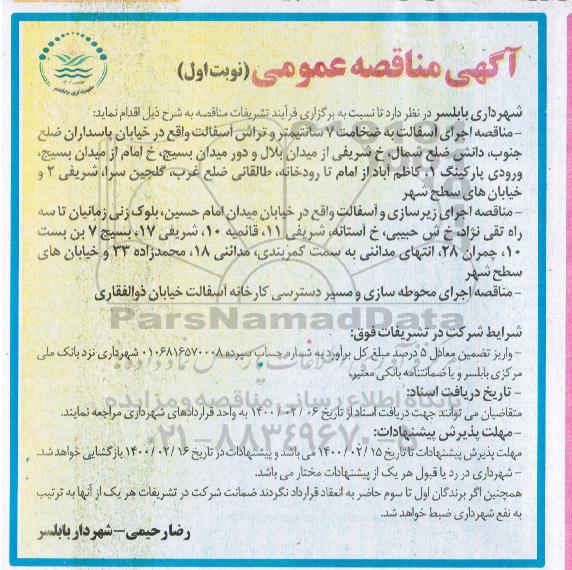 آگهی مناقصه عمومی (نوبت اول)
شهرداری بابلسر
شهرداری بابلسر در نظر دارد تا نسبت به برگزاری فرآیند تشریفات مناقصه به شرح ذیل اقدام نماید:
- مناقصه اجرای آسفالت به ضخامت ۷ سانتیمتر و تراش آسفالت واقع در خیابان پاسداران ضلع
جنوب، دانش ضلع شمال، خ شریفی از میدان بلال و دور میدان بسیج، خ امام از میدان بسیج،
ورودی پارکینگ ۱، کاظم آباد از امام تا رودخانه، طالقانی ضلع غرب، گلچین سرا، شریفی ۲ و
خیابان های سطح شهر
- مناقصه اجرای زیرسازی و آسفالت واقع در خیابان میدان امام حسین، بلوک زنی زمانیان تا سه
راه تقی نژاد، خ ش حبیبی، خ آستانه، شریفی ۱۱، قائمیه ۱۰، شریفی ۱۷، بسیج ۷ بن بست
۱۰، چمران ۲۸، انتهای مدائنی به سمت کمربندی، مدائنی ۱۸، محمدزاده ۳۳ و خیابان های
سطح شهر
- مناقصه اجرای محوطه سازی و مسیر دسترسی کارخانه آسفالت خیابان ذوالفقاری
ParsNamadData
شرایط شرکت در تشریفات فوق:
- واریز تضمین معادل ۵ درصد مبلغ کل برآورد به شماره حساب سپرده ۰۱۰۶۸۱۶۵۷۰۰۰۸ شهرداری نزد بانک ملی
مرکزی بابلسر و یا ضمانتنامه بانکی معتبر.
- تاریخ دریافت اسناد:
پایگاه اطلاع رسانی مناقصه و مزایده
متقاضیان می توانند جهت دریافت اسناد از تاریخ ۱۴۰۰/۰۲/۰۶ به واحد قراردادهای شهرداری مراجعه نمایند.
- مهلت پذیرش پیشنهادات:
۰۲۱-۸۸۳۴۹۶۷۰
مهلت پذیرش پیشنهادات تا تاریخ ۱۴۰۰/۰۲/۱۵ می باشد و پیشنهادات در تاریخ ۱۴۰۰/۰۲/۱۶ بازگشایی خواهد شد.
- شهرداری در رد یا قبول هر یک از پیشنهادات مختار می باشد.
همچنین اگر برندگان اول تا سوم حاضر به انعقاد قرارداد نگردند ضمانت شرکت در تشریفات هر یک از آنها به ترتیب
به نفع شهرداری ضبط خواهد شد.
رضا رحیمی - شهردار بابلسر